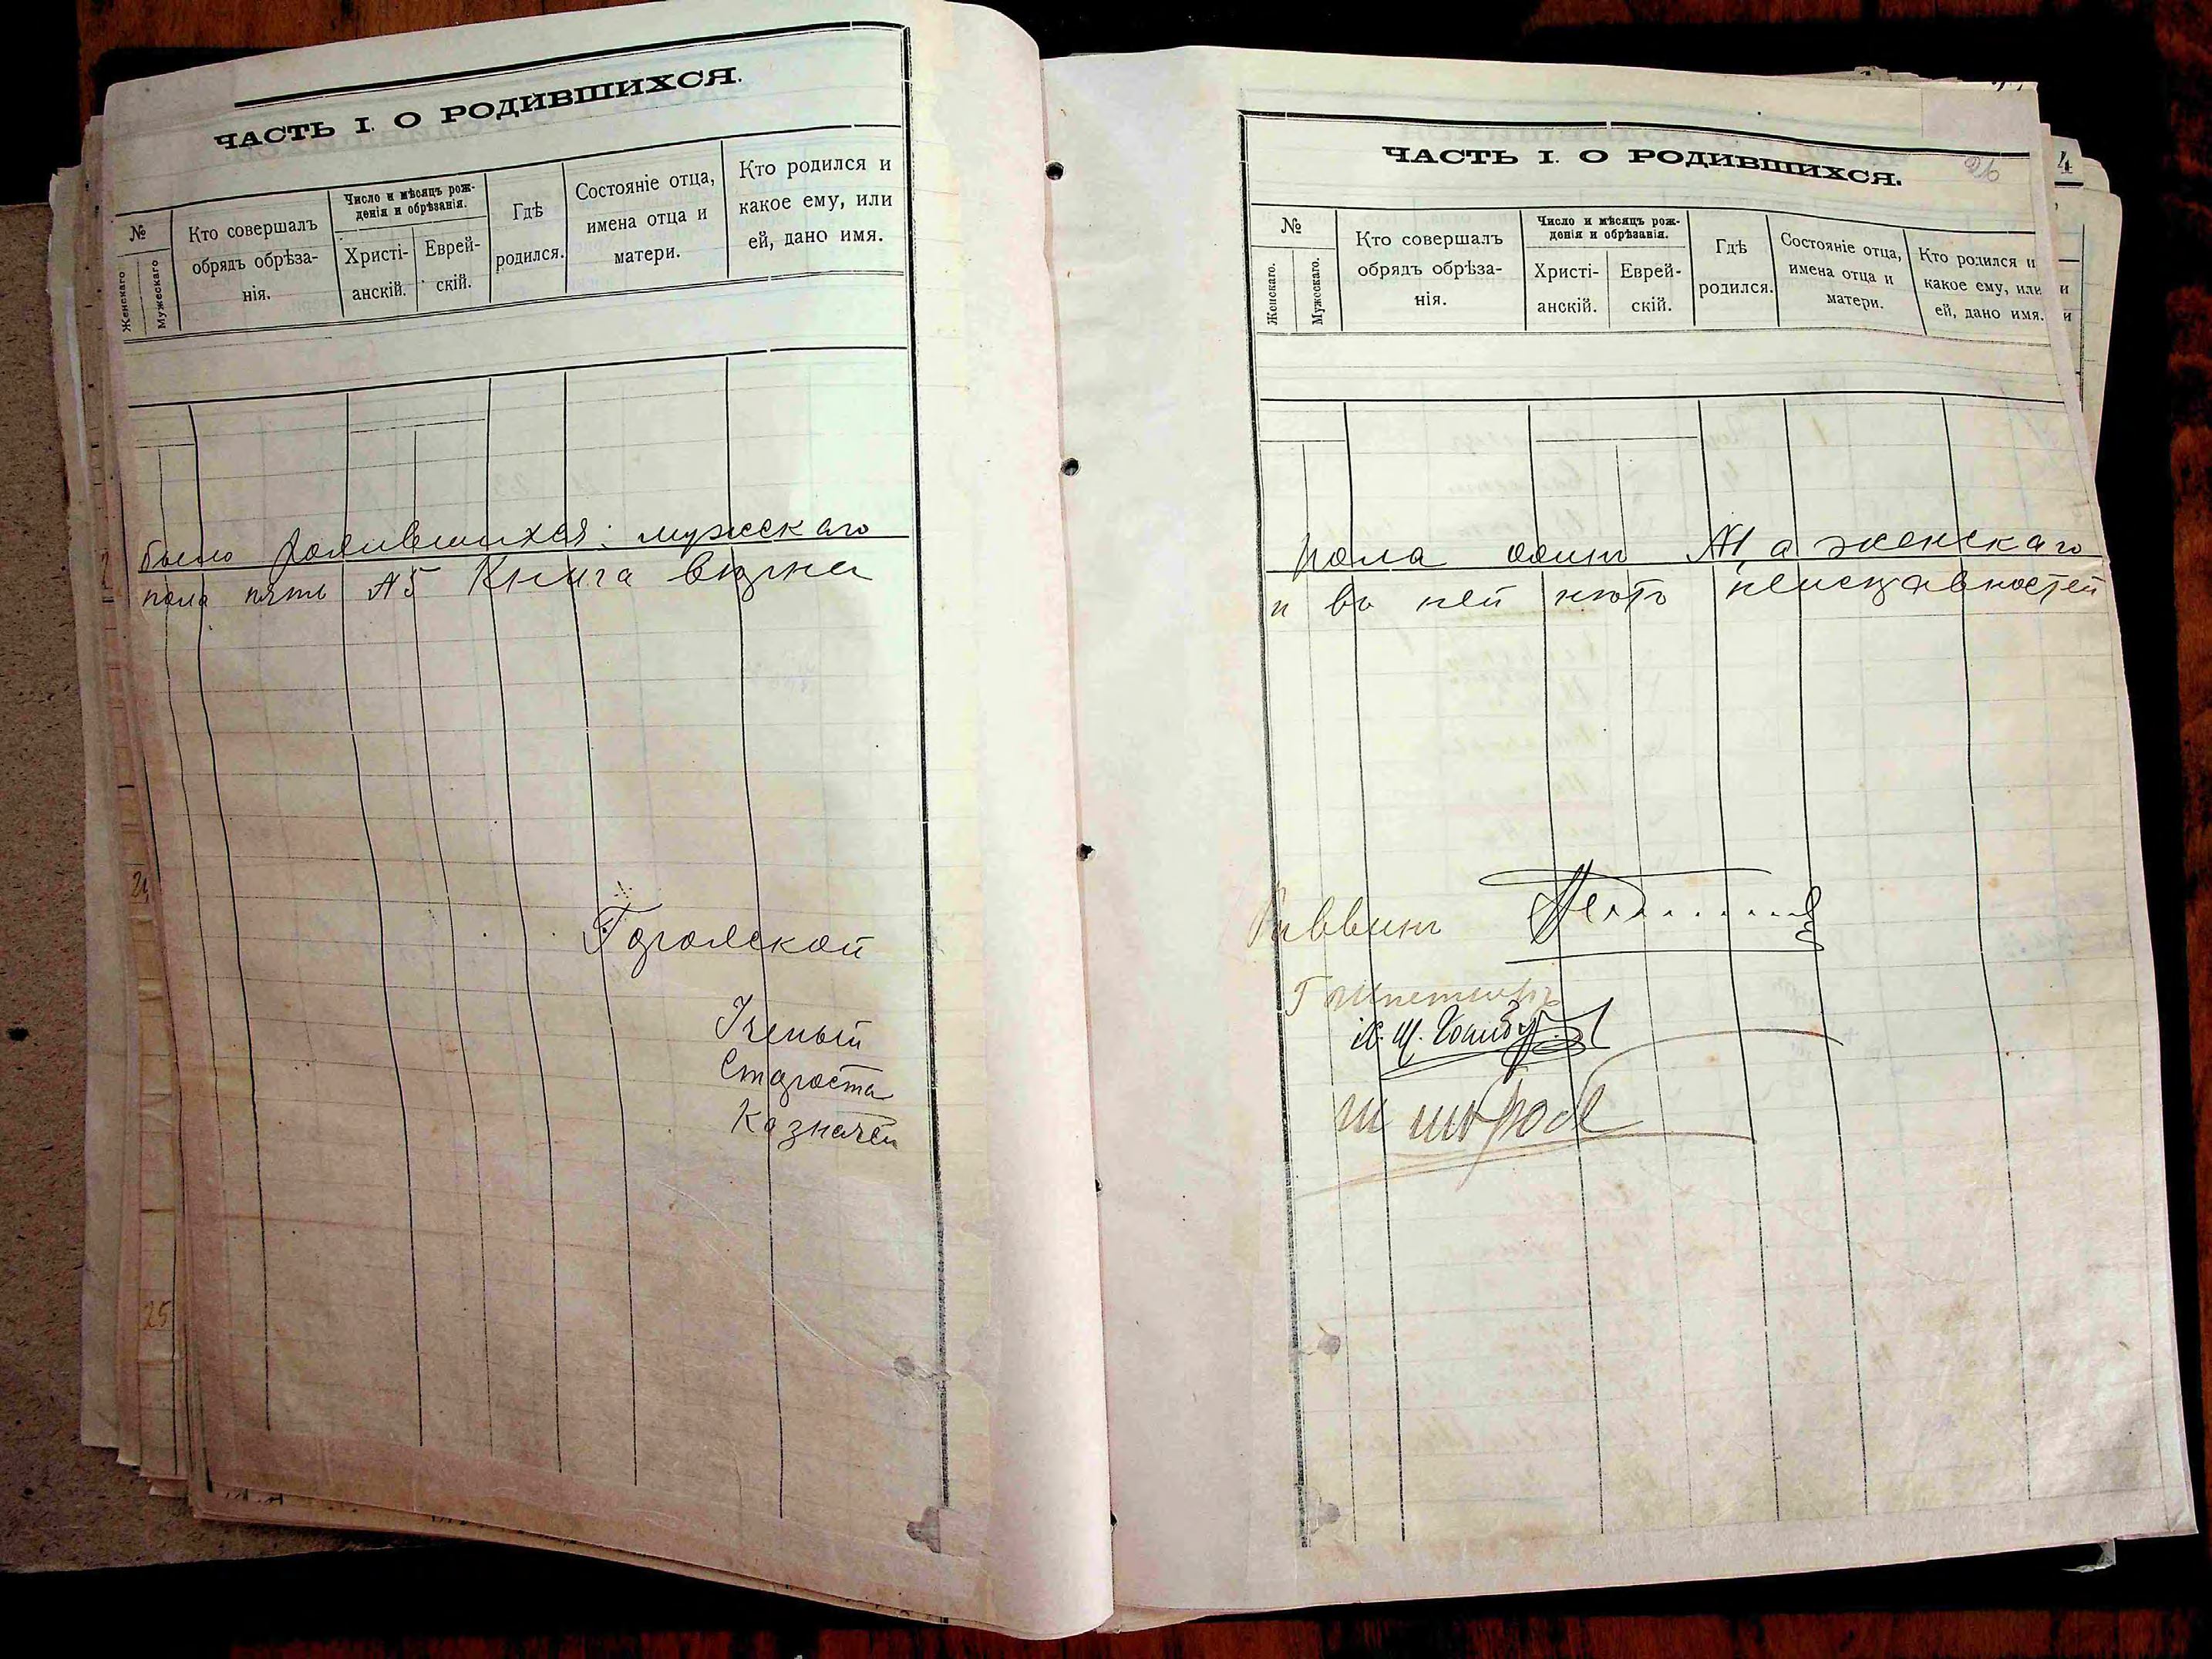 ЧАСТЬ I. О РОДИВШИХСЯ.
№
Женскаго
Мужескаго
Кто совершалъ
обрядъ обрѣза-
нія.
Число и мѣсяцъ рож-
денія и обрѣзанія.
Христі-
анскій.
Еврей-
скій.
Гдѣ
родился.
Состояніе отца,
имена отца и
матери.
Кто родился и
какое ему, или
ей, дано имя.
было родившихся: мужскаго
пола пять №5 Книга вѣрна
24
25
Городской
Ученый
Староста
Казначей
ЧАСТЬ I. О РОДИВШИХСЯ.
4
№
Женскаго.
Мужескаго.
Кто совершалъ
обрядъ обрѣза-
нія.
Число и мѣсяцъ рож-
денія и обрѣзанія.
Христі-
анскій.
Еврей-
скій.
Гдѣ
родился.
Состояніе отца,
имена отца и
матери.
Кто родился и
какое ему, или
ей, дано имя.
пола одинъ №1 а женскаго
и въ ней нѣтъ неисправностей
Раввинъ